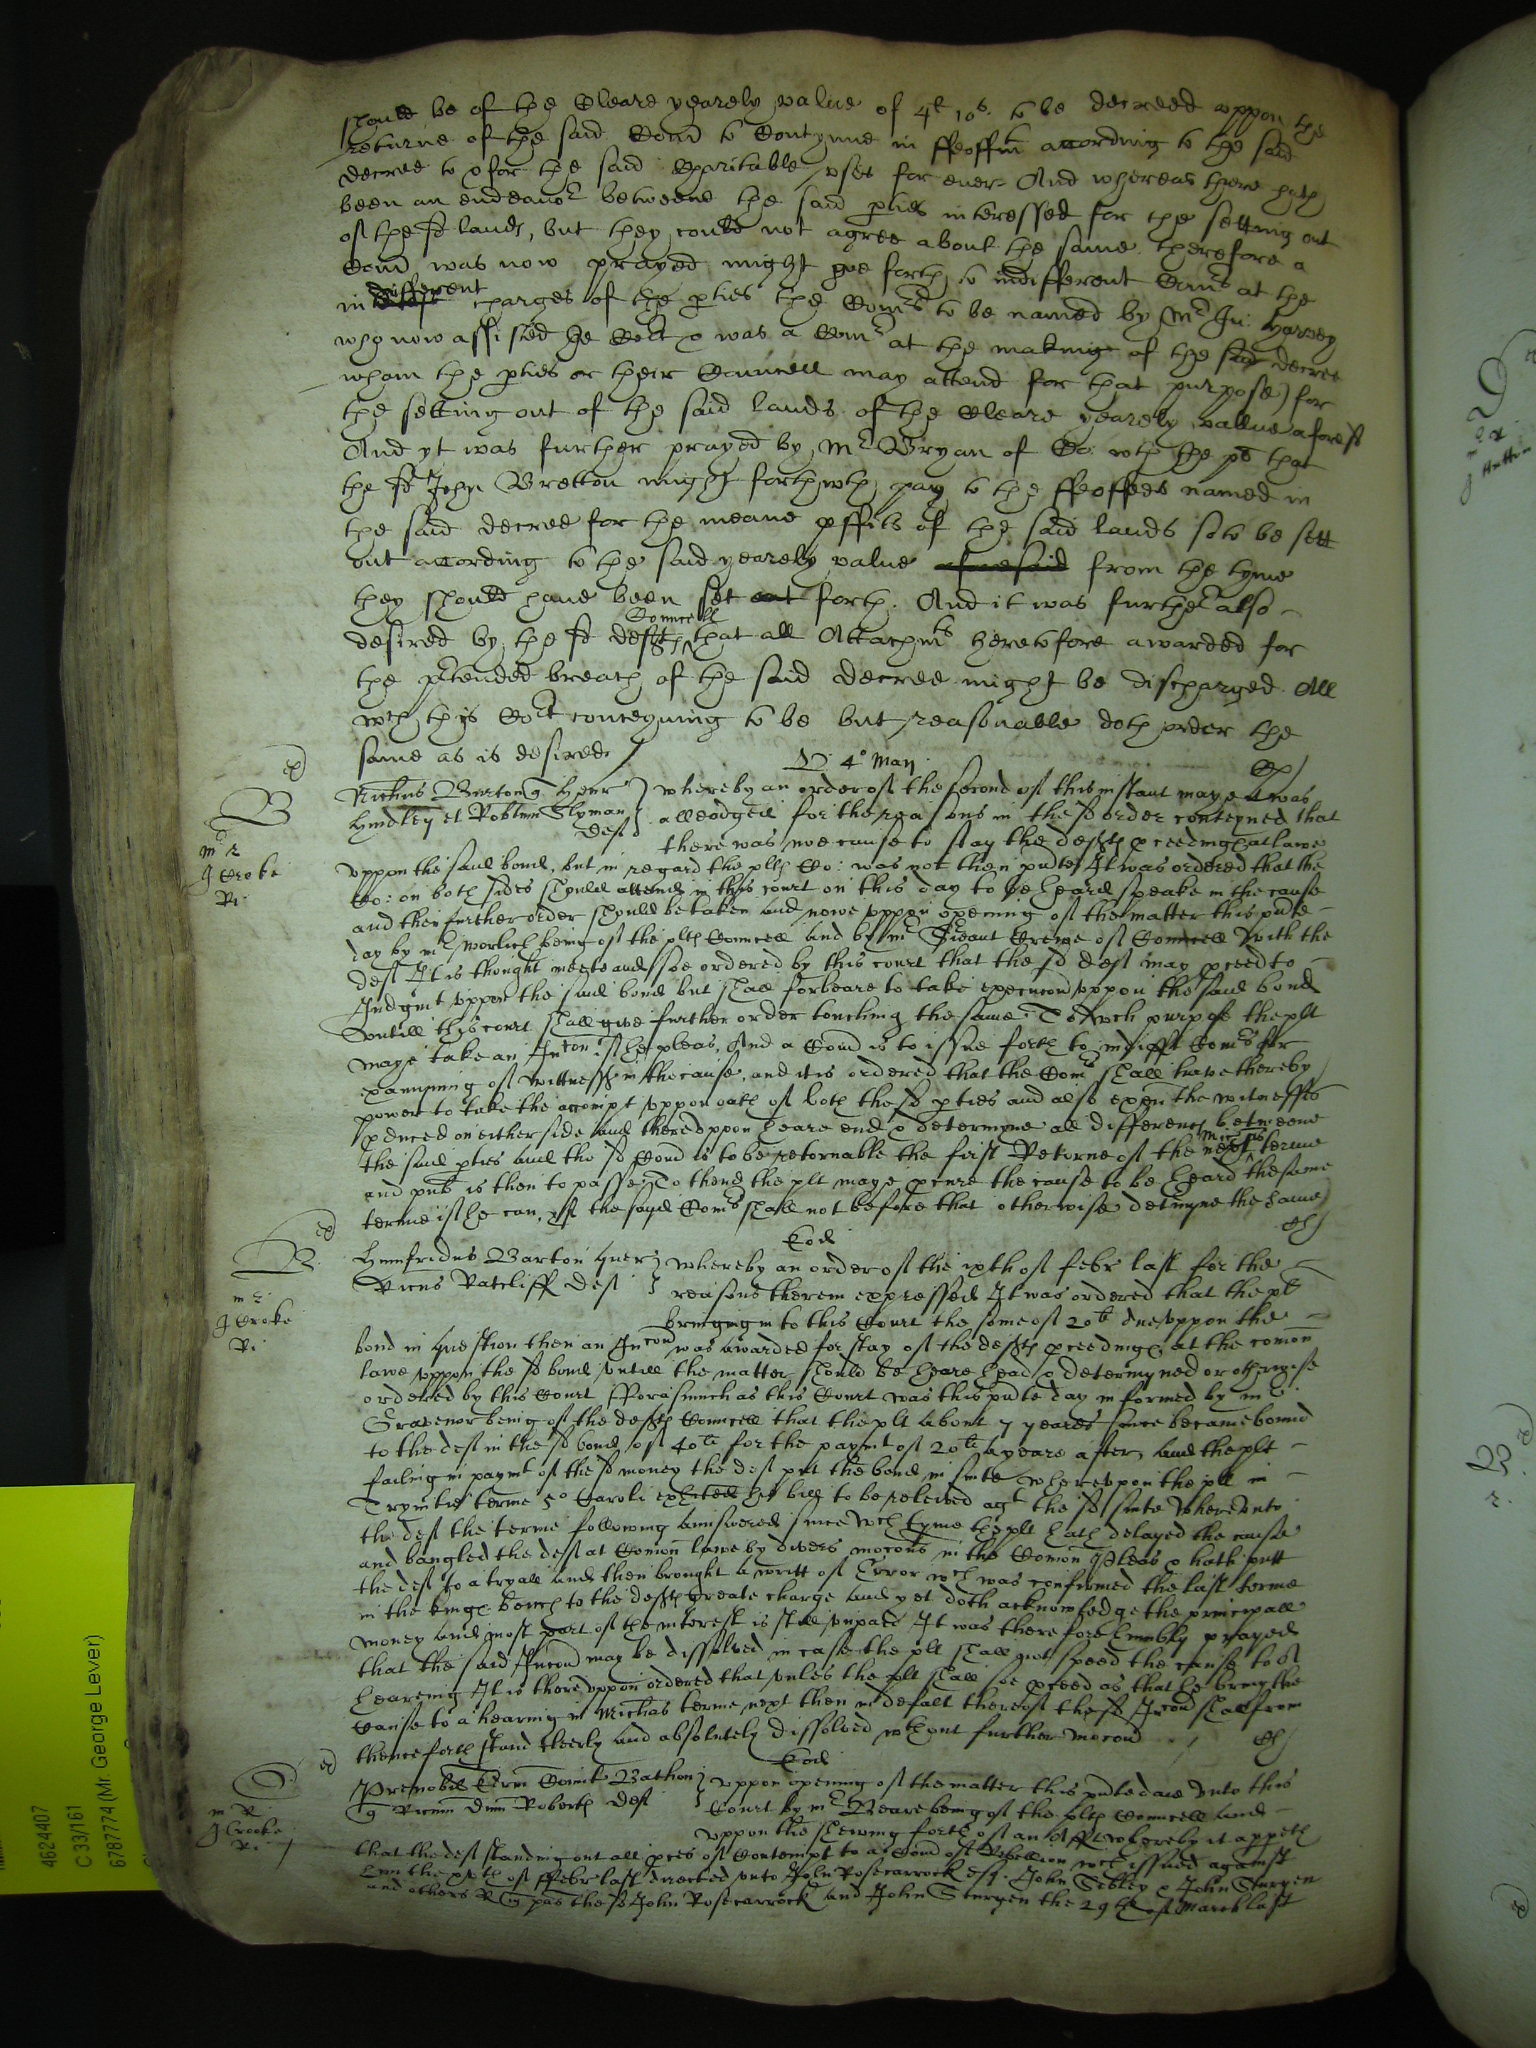 should be of the Cleare yearely value of 4l 10s. to be decreed vppon the
returne of the said Com to Contynue in ffeoffmt according to the said
decree to & for the said Charitable vses for ever. And whereas there hath
been an endeavor betweene the said pties interessed for the setting out
of the sd lands, but they could not agree about the same. therefore a
Com was now prayed might goe forth to indifferent Comrs at the
indifferent charges of the pties the Comrs to be named by Mr Jn: Harvey
who now assisted the Cort & was a Comr at the making of the said decree
whom the pties or their Councell may attend for that purpose) for
the setting out of the said lands of the Cleare yearely value aforesd
And yt was further prayed by Mr Bryan of Co: wth the pl that
the sd John Bretton might forthwth pay to the ffeoffees named in
the said decree for the meane pffits of the said lands so to be sett
out according to the said yearely value aforesaid from the tyme
they should have been set out forth. And it was further also
Councell
desired by the sd defts that all Attachmts heretofore awarded for
the prtended breach of the said decree might be discharged. All
wch this Cort conceyving to be but reasonable doth order the
same as is desired
D: 4o Maij
Nichus Burton Henr
Hindley et Robtum Slyman
deft
whereby an order of the second of this instant maye it was
alleadged for the reasons in the sd order conteyned that
there was noe cause to stay the defts pceedings at lawe
vppon the said bond, but in regard the plts Co: was not then pnte It was ordered that the
Co: on both sides should attend in this court on this day to be heard speake in the cause
and then further order should be taken and nowe vppon opening of the matter this pnte
day by mr Worlich being of the plts Councell and by mr Srieant Crewe of Councell with the
deft It is thought meete and soe ordered by this court that the sd deft may pceed to
Judgmt vppon the said bond but shall forbeare to take execucon vppon the said bond
vntill this court shall give further order touching the same. To wch purpose the plt
maye take an Incon if he pleas, And a Com is to issue forth to indifft Comrs for
examyning of wittnesses in the cause, and it is ordered that the Comrs shall have thereby
power to take the accompt vppon oath of both the sd pties and also exen the witnesses
pduced on either side and therevppon heare end & determyne all differences betweene
the said pties and the sd Com is to be retornable the first Returne of the next Michas terme
and publ is then to passe To thend the plt maye pcure the cause to be heard the same
terme if he can, yf the sayd Comrs shall not before that otherwise determyne the same
Eod
B
mr R
J Croke
Ri
Humfridus Barton quer
Ricus Ratcliff deft
whereby an order of the ixth of febr last for the
reasons therein expressed It was ordered that the pl
bringing in to this Court the some of 20li due vppon the
bond in question then an Incon was awarded for stay of the defts pceedings at the comon
lawe vppon the sd bond vntill the matter should be heare head & determyned or otherwise
ordered by this Court fforasmuch as this Court was this pnte day informed by mr
Gravenor being of the defts Councell that the plt about 7 yeares since became bound
to the deft in the sd bond of 40li for the paymt of 20li a yeare after, and the plt
failing in paymt of the sd money the deft put the bond in suite wherevpon the plt in
Trynitie terme 5o Caroli exhited his bill to be releived agt the sd suite wherevnto
the deft the terme following answered since wch tyme the plt hath delayed the cause
and bangled the deft at Comon lawe by divers mocons in the Comon Pleas & hath putt
the deft to a tryall and then brought a writt of Error wch was confirmed the last terme
in the kings bench to the defts greate charge and yet doth acknowledge the principall
money and most part of the interest is still vnpaid It was therefore humbly prayed
that the said Incon may be dissolved in case the plt shall not speed the cause to a
heareing It is therevppon ordered that vnles the plt shall soe pceed as that he bring the
cause to a hearing in Michas terme next then in defalt thereof the sd Incon shall from
thenceforth stand cleerly and absolutely dissolved wthout further mocon
Eod
mr R
J Crooke
Ri
Prenobil Comit Bathon
Dnm Roberts deft
vppon opening of the matter this pnte daie vnto this
Court by mr Beare being of the plts Councell and
vppon the shewing forth of an Afft whereby it appeth
that the deft standing out all pces of Contempt to a Com of Rebellion wch issued against
him the of ffebr last directed vnto John Rosecarrock esq. John Sibley & John Sturgen
and others the sd John Rosecarrock and John Sturgen the 29th of March last
4624407
C 33/161
(Mr. George Lever)